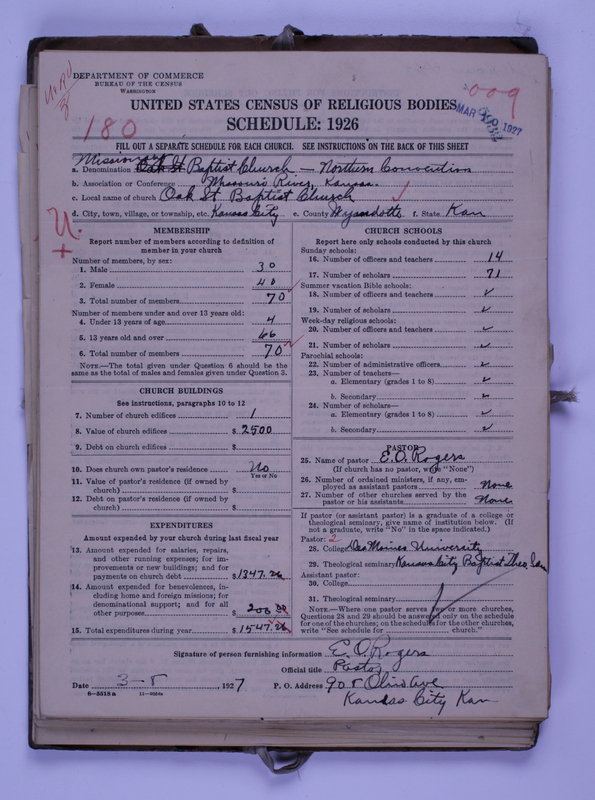 DEPARTMENT OF COMMERCE
BUREAU OF THE CENSUS
WASHINGTON
009
MAR 10 1927
UNITED STATES CENSUS OF RELIGIOUS BODIES
SCHEDULE: 1926
180
FILL OUT A SEPARATE SCHEDULE FOR EACH CHURCH. SEE INSTRUCTIONS ON THE BACK OF THIS SHEET
Missionary
a. Denomination Oak St Baptist Church — Northern Convention
b. Association or Conference Missouri River, Kansas.
c. Local name of church Oak St Baptist Church
d. City, town, village, or township, etc. Kansas City e. County Wyandotte f. State Kan
U.
MEMBERSHIP
Report number of members according to definition of
member in your church
Number of members, by sex:
1. Male 30
2. Female 40
3. Total number of members 70
Number of members under and over 13 years old:
4. Under 13 years of age 4
5. 13 years old and over 66
6. Total number of members 70
NOTE.—The total given under Question 6 should be the
same as the total of males and females given under Question 3.
CHURCH BUILDINGS
See instructions, paragraphs 10 to 12
7. Number of church edifices 1
8. Value of church edifices $ 2500
9. Debt on church edifices $
10. Does church own pastor's residence No
Yes or No
11. Value of pastor's residence (if owned by
church) $
12. Debt on pastor's residence (if owned by
church) $
EXPENDITURES
Amount expended by church during last fiscal year
13. Amount expended for salaries, repairs,
and other running expenses; for im-
provements or new buildings; and for
payments on church debt $1347.26
14. Amount expended for benevolences, in-
cluding home and foreign missions; for
denominational support; and for all
other purposes 200 00
15. Total expenditures during year $1547.26
CHURCH SCHOOLS
Report here only schools conducted by this church
Sunday schools:
16. Number of officers and teachers 14
17. Number of scholars 71
Summer vacation Bible schools:
18. Number of officers and teachers ✓
19. Number of scholars ✓
Week-day religious schools:
20. Number of officers and teachers ✓
21. Number of scholars ✓
Parochial schools:
22. Number of administrative officers ✓
23. Number of teachers—
a. Elementary (grades 1 to 8) ✓
b. Secondary ✓
24. Number of scholars—
a. Elementary (grades 1 to 8) ✓
b. Secondary ✓
PASTOR
25. Name of pastor E. O. Rogers
(If church has no pastor, write "None")
26. Number of ordained ministers, if any, em-
ployed as assistant pastors None
27. Number of other churches served by the
pastor or his assistants None
If pastor (or assistant pastor) is a graduate of a college or
theological seminary, give name of institution below. (If
not a graduate, write "No" in the space indicated.)
Pastor: 2
28. College Des Moines University
29. Theological seminary Kansas City Baptist Theo. Sem
Assistant pastor:
30. College
31. Theological seminary
NOTE.—Where one pastor serves two or more churches,
Questions 28 and 29 should be answered only on the schedule
for one of the churches; on the schedules for the other churches,
write "See schedule for church."
Signature of person furnishing information E. O. Rogers
Official title Pastor
Date 3-5, 1927 P. O. Address 905 Ohio Ave
Kansas City Kan
8-5518a